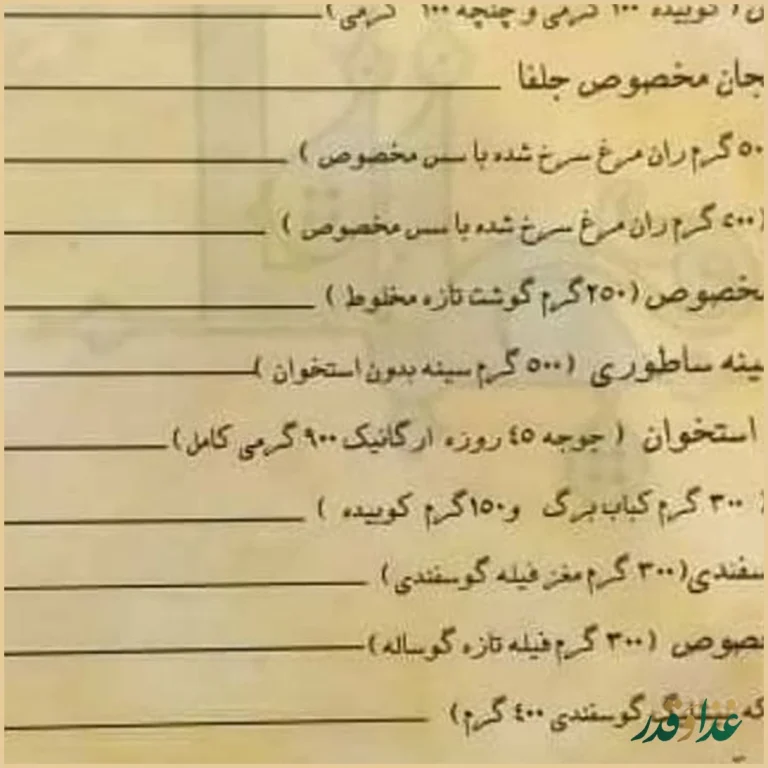 کوبیده ۱۰۰ گرمی و چنجه ۱۰۰ گرمی)
مخصوص جلفا
گرم ران مرغ سرخ شده با سس مخصوص )
(٤۰۰ گرم ران مرغ سرخ شده با سس مخصوص )
(۲۵۰گرم گوشت تازه مخلوط )
ساطوری (۵۰۰ گرم سینه بدون استخوان )
استخوان ( جوجه ٤۵ روزه ارگانیک ۹۰۰ گرمی کامل)
۳۰۰ گرم کباب برگ و۱۵۰گرم کوبیده )
(۳۰۰ گرم مغز فیله گوسفندی)
(۳۰۰ گرم فیله تازه گوساله)
گوسفندی ٤۰۰ گرم)